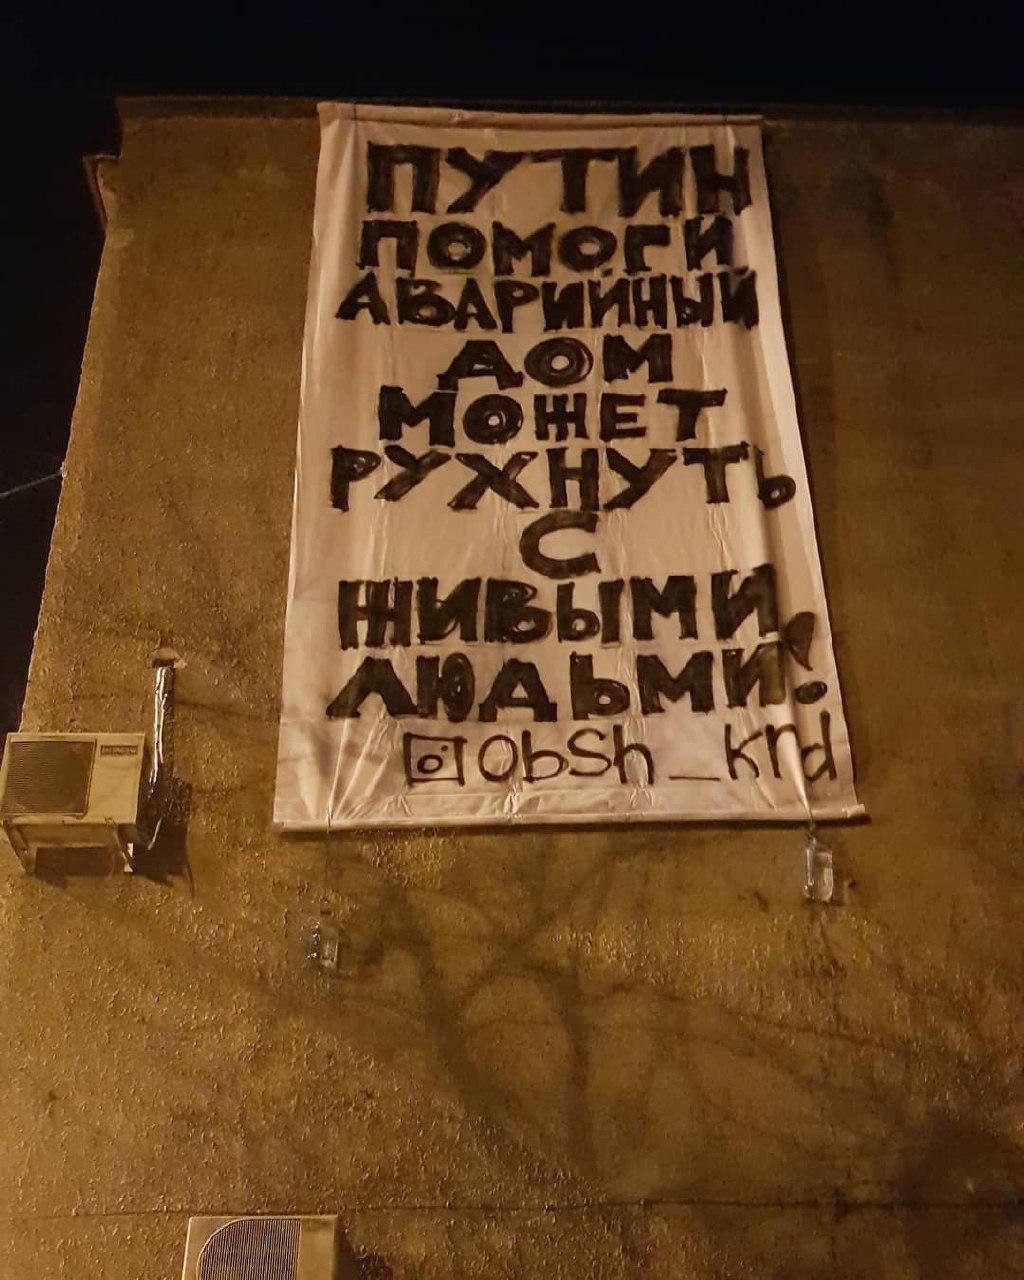 ПУТИН
ПОМОГИ
АВАРИЙНЫЙ
ДОМ
МОЖЕТ
РУХНУТЬ
С
ЖИВЫМИ
ЛЮДЬМИ!
obsh_krd